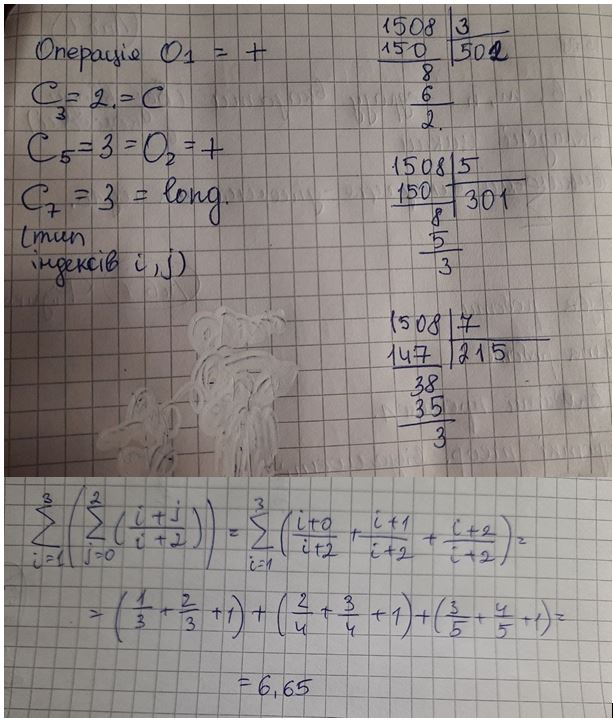 Операція O₁ = +
C₃ = 2. = C
C₅ = 3 = O₂ = +
C₇ = 3 = long.
(тип
індексів i, j)
1508 | 3
150 | 502
8
6
2.
1508 | 5
150 | 301
8
5
3
1508 | 7
147 | 215
38
35
3
∑_{i=1}^{3} (∑_{j=0}^{2} ((i+j)/(i+2))) = ∑_{i=1}^{3} ((i+0)/(i+2) + (i+1)/(i+2) + (i+2)/(i+2)) =
= (1/3 + 2/3 + 1) + (2/4 + 3/4 + 1) + (3/5 + 4/5 + 1) =
= 6,65